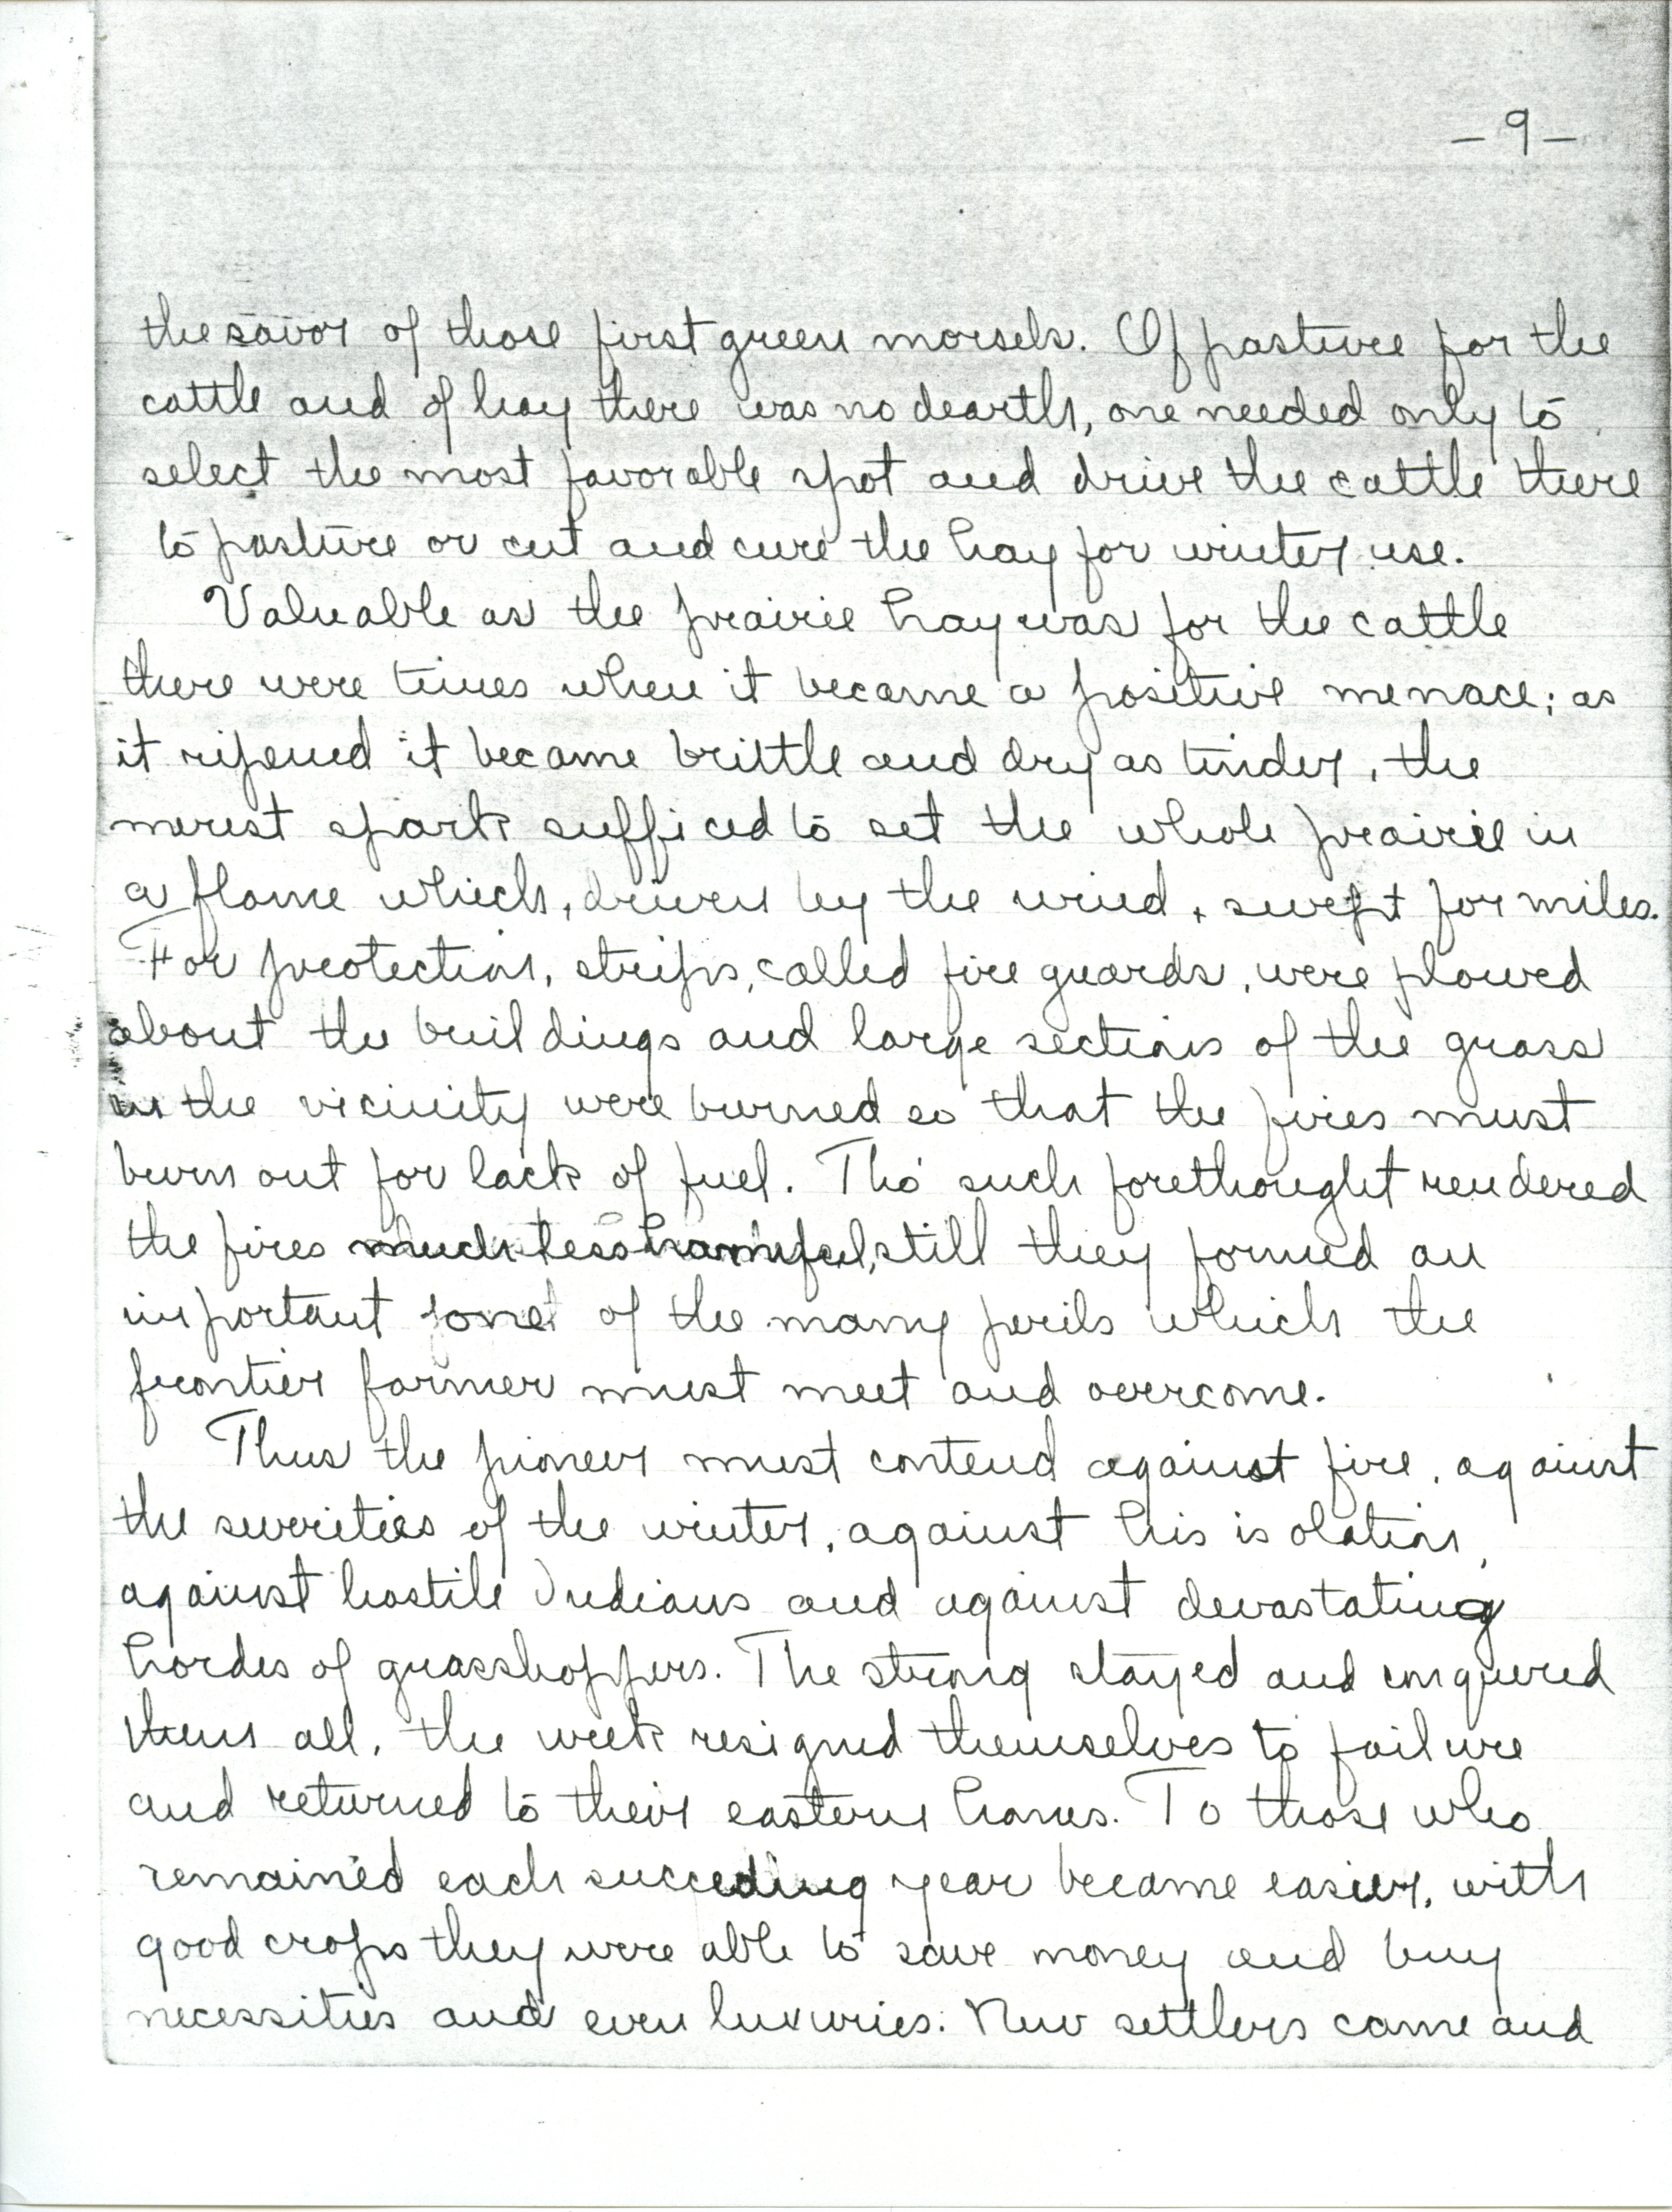 -9-
the savor of those first green morsels. Of pasture for the
cattle and of hay there was no dearth, one needed only to
select the most favorable spot and drive the cattle there
to pasture or cut and cure the hay for winter use.
Valuable as the prairie hay was for the cattle
there were times when it became a positive menace; as
it ripened it became brittle and dry as tinder, the
merest spark sufficed to set the whole prairie in
a flame which, driven by the wind, swept for miles.
For protection, strips, called fire guards, were plowed
about the buildings and large sections of the grass
in the vicinity were burned so that the fires must
burn out for lack of fuel. Tho' such forethought rendered
the fires much less harmful, still they formed an
important one of the many perils which the
frontier farmer must meet and overcome.
Thus the pioneer must contend against fire, against
the severities of the winter, against his isolation,
against hostile Indians and against devastating
hordes of grasshoppers. The strong stayed and conquered
them all, the weak resigned themselves to failure
and returned to their eastern homes. To those who
remained each succeeding year became easier, with
good crops they were able to save money and buy
necessities and even luxuries. New settlers came and